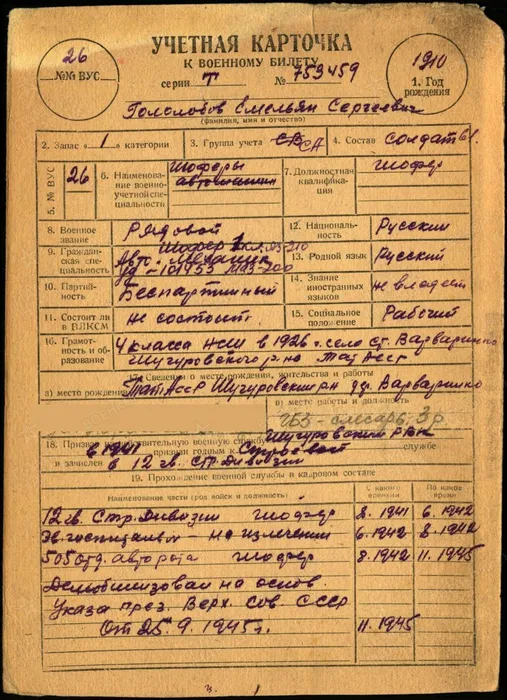 УЧЕТНАЯ КАРТОЧКА
К ВОЕННОМУ БИЛЕТУ
26
№№ ВУС
серии Т № 759459
1910
1. Год рождения
Гололобов Емельян Сергеевич
(фамилия, имя и отчество)
2. Запас „1" категории
3. Группа учета СА
4. Состав солдат
5. № ВУС
26
6. Наименование военно-учетной специальности
шоферы
7. Должностная квалификация
шофер
8. Военное звание
Рядовой
12. Национальность
Русский
9. Гражданская специальность
Шофер
Авто-механик
13. Родной язык
Русский
10. Партийность
Беспартийный
14. Знание иностранных языков
не владеет
11. Состоит ли в ВЛКСМ
не состоит
15. Социальное положение
Рабочий
16. Грамотность и образование
4 класса НСШ в 1926 г. село ст. Варварино
Шугуровского р-на Тат АССР
17. Сведения о месте рождения, жительства и работы
а) место рождения
Тат. АССР Шугуровский р-н д. Варварино
в) место работы и должность
слесарь 3р
18. Призван на действительную военную службу
6.1941
Шугуровским РВК
признан годным к Строевой службе
и зачислен в 12 гв. стр. дивизию
19. Прохождение военной службы в кадровом составе
Наименование части (род войск и должность)
С какого времени
По какое время
12 гв. Стр. Дивизии шофер 8.1941 6.1942
Эв. госпиталь - на излечении 6.1942 8.1942
505 отд. авторота шофер 8.1942 11.1945
Демобилизован на основ.
Указа през. Верх. Сов. СССР
От 25.9.1945г. 11.1945